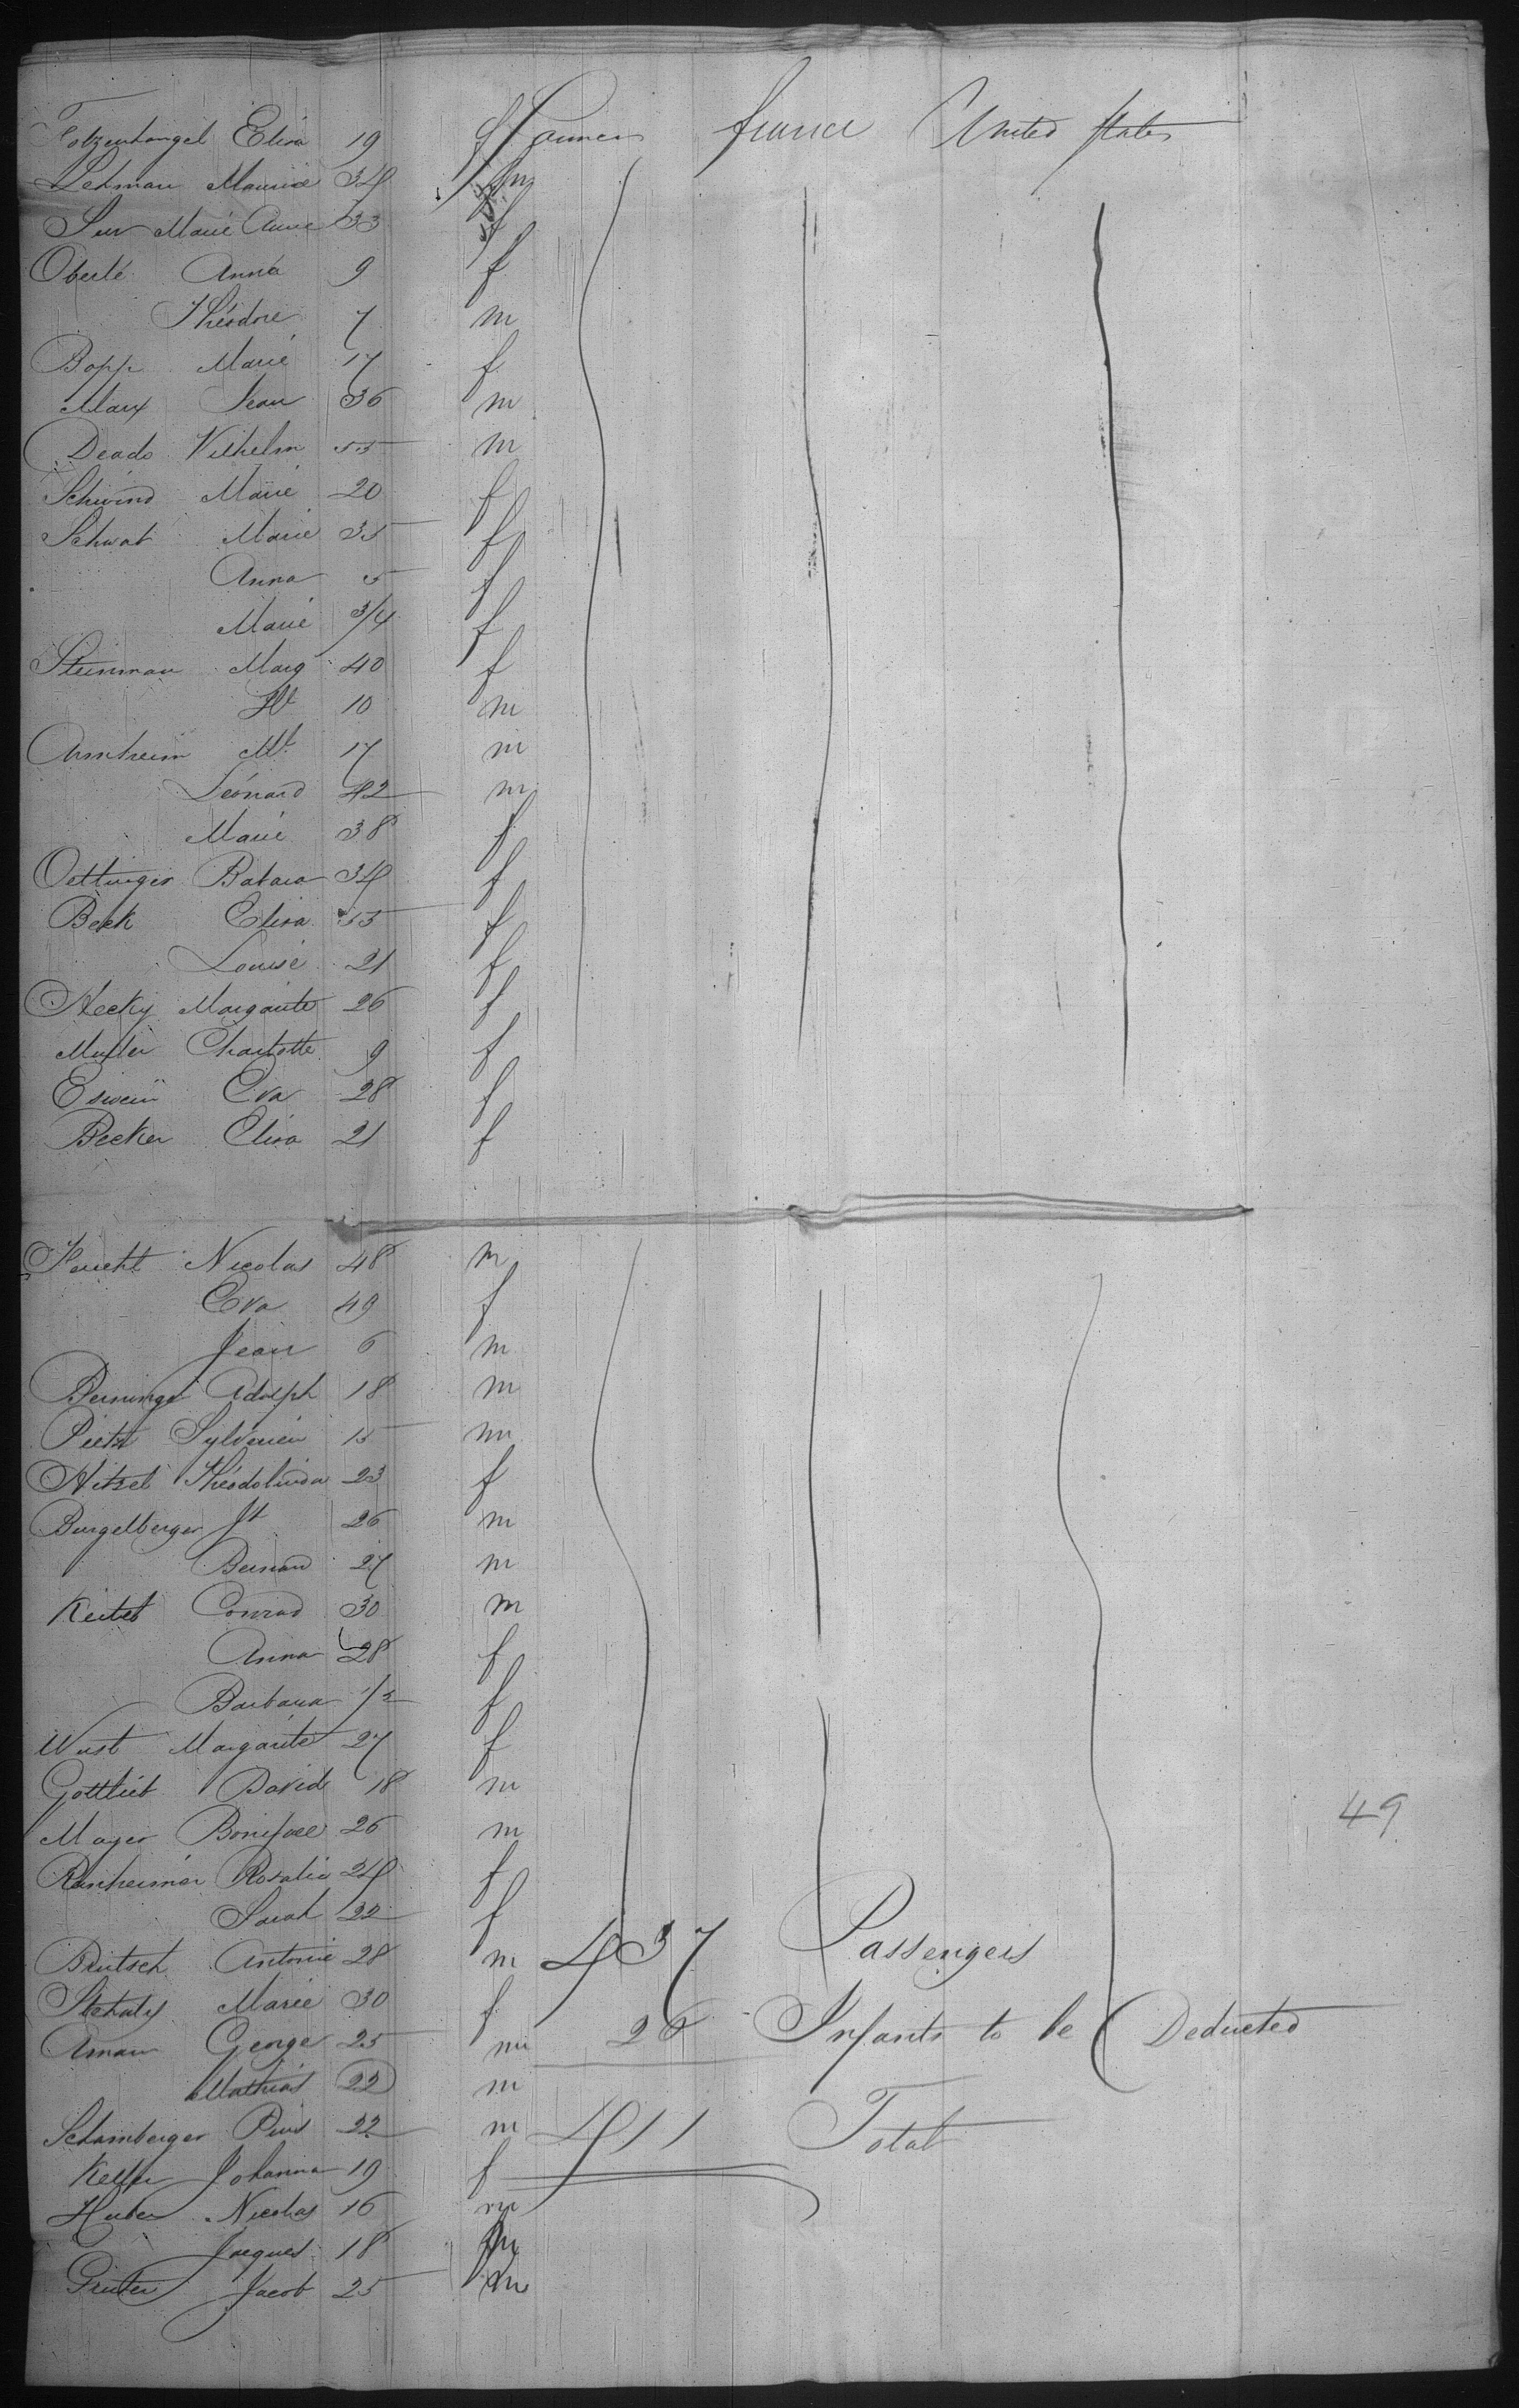 Fotzenhangel Elisa 19 f Farmers france United States
Lehman Maurice 34 m
Sur Marie Anne 33 f
Oberlé Anna 9 f
Théodore 7 m
Bopp Marie 17 f
Marx Jean 36 m
Deado Vilhelm 55 m
Schwind Marie 20 f
Schwab Marie 35 f
Anna 5 f
Marie 3/4 f
Steinman Marg 40 f
10 m
Arnheim 17 m
Léonard 42 m
Marie 38 f
Oettinger Babara 34 f
Beck Elisa 55 f
Louise 21 f
Hecky Margarite 26 f
Muller Charlotte 9 f
Eswein Eva 28 f
Becker Elisa 21 f
Feucht Nicolas 48 m
Eva 49 f
Jean 6 m
Berninger Adolph 18 m
Pietri Sylverien 15 m
Hitzel Théodolinda 23 f
Burgelberger Jh 26 m
Bernard 27 m
Keitel Conrad 30 m
Anna 28 f
Barbara 1/2 f
Wust Margarite 27 f
Gottlieb David 18 m
49
Mayer Boniface 26 m
Renheimer Rosalie 24 f
Sarah 22 f
Brutsch Antonie 28 m 437 Passengers
Stehaly Marie 30 f
Aman George 25 m 26 Infants to be Deducted
Mathias 22 m
Schamberger Pius 22 m 411 Total
Keller Johanna 19 f
Huber Nicolas 16 m
Jacques 18 m
Ginter Jacob 25 m